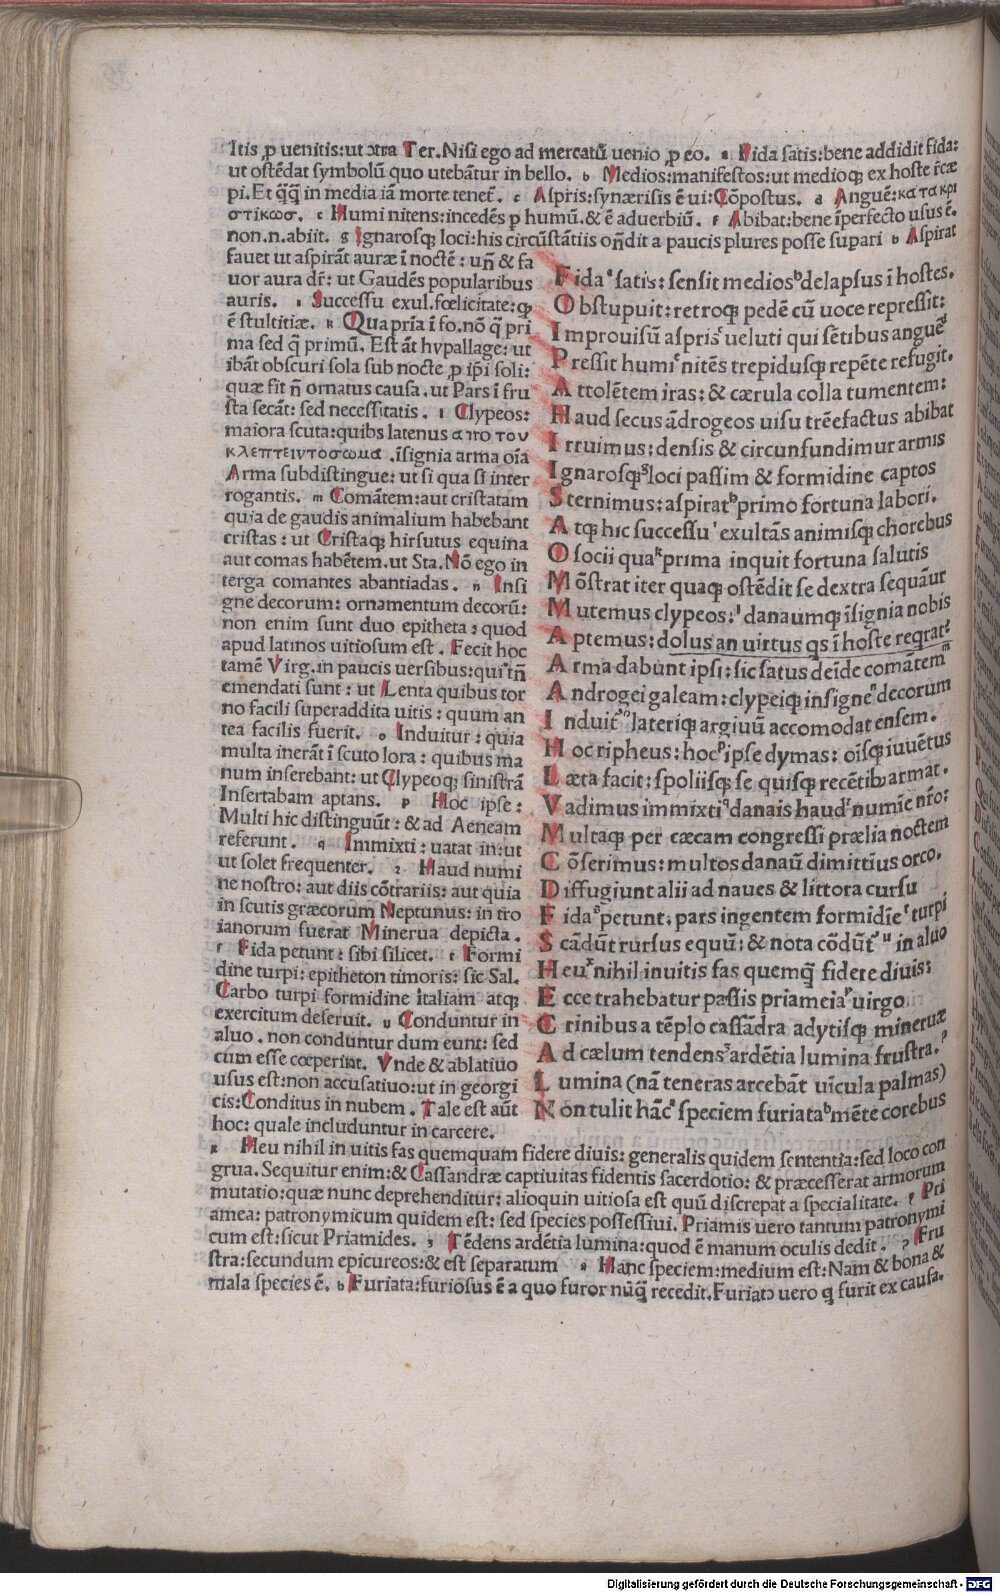 Itis ꝓ uenitis:ut ɔtra Ter. Nisi ego ad mercatū uenio ꝓ eo. a Fida satis:bene addidit fida:
ut ostēdat symbolū quo utebātur in bello. b Medios:manifestos:ut medioq; ex hoste r̄cæ
pi. Et q̄q̄ in media iā morte tenet̄. c Aspris:synærisis ē ui:Cōpostus. d Anguē:κατακρι
στικωσ. e Humi nitens:incedēs ꝑ humū.& ē aduerbiū. f Abibat:bene īperfecto usus ē.
non.n.abiit. g Ignarosq; loci:his circūstātiis on̄dit a paucis plures posse supari h Aspirat
fauet ut aspirāt auræ ī noctē: un̄ & fa
uor aura dr̄: ut Gaudēs popularibus
auris. i Successu exul. fœlicitate:q̨
ē stultitiæ. k Qua pria ī fo.nō q̄ pri
ma sed q̄ primū. Est āt hypallage: ut
ibāt obscuri sola sub nocte ꝓ ip̄i soli:
quæ fit n̄ ornatus causa. ut Pars ī fru
sta secāt: sed necessitatis. l Clypeos:
maiora scuta:quibs latenus απο του
κλεπτειντοσωμα .īsignia arma oīa
Arma subdistingue: ut si qua si inter
rogantis. m Comātem:aut cristatam
quia de gaudis animalium habebant
cristas: ut Cristaq; hirsutus equina
aut comas habētem.ut Sta.Nō ego in
terga comantes abantiadas. n Insi
gne decorum: ornamentum decorū:
non enim sunt duo epitheta; quod
apud latinos uitiosum est. Fecit hoc
tamē Virg.in paucis uersibus:qui tn̄
emendati sunt: ut Lenta quibus tor
no facili superaddita uitis: quum an
tea facilis fuerit. o Induitur: quia
multa inerāt ī scuto lora: quibus ma
num inserebant: ut Clypeoq; sinistrā
Insertabam aptans. p Hoc ipse:
Multi hic distinguūt: & ad Aeneam
referunt. q Immixti: uatat in:ut
ut solet frequenter. r Haud numi
ne nostro: aut diis cōtrariis: aut quia
in scutis græcorum Neptunus: in tro
ianorum fuerat Minerua depicta.
s Fida petunt: sibi silicet. t Formi
dine turpi: epitheton timoris: sic Sal.
Carbo turpi formidine italiam atq;
exercitum deseruit. u Conduntur in
aluo. non conduntur dum eunt: sed
cum esse cœperint. Vnde & ablatiuo
usus est:non accusatiuo:ut in georgi
cis:Conditus in nubem. Tale est aūt
hoc: quale includuntur in carcere.
Fida satis: sensit medios delapsus ī hostes.
Obstupuit: retroq; pedē cū uoce repressit:
Improuisū aspris ueluti qui sētibus anguē
Pressit humi nitēs trepidusq; repēte refugit.
Attolētem iras: & cærula colla tumentem:
Haud secus ādrogeos uisu trēefactus abibat
Irruimus: densis & circunfundimur armis
Ignarosq; loci passim & formidine captos
Sternimus: aspirat primo fortuna labori.
Atq; hic successu exultās animisq; chorebus
O socii qua prima inquit fortuna salutis
Mōstrat iter quaq; ostēdit se dextra sequāur
Mutemus clypeos: danaumq; īsignia nobis
Aptemus: dolus an uirtus qs ī hoste reqrat:
Arma dabunt ipsi: sic fatus deīde comātem
Androgei galeam: clypeiq; insigne decorum
Induit lateriq; argiuū accomodat ensem.
Hoc ripheus: hoc ipse dymas: oīsq; iuuētus
Læta facit: spoliisq; se quisq; recētib; armat.
Vadimus immixti danais haud numīe nr̄o:
Multaq; per cæcam congressi prælia noctem
Cōserimus: multos danaū dimittīus orco.
Diffugiunt alii ad naues & littora cursu
Fida petunt. pars ingentem formidīe turpi
Scādūt rursus equū: & nota cōdūt in aluo
Heu nihil inuitis fas quemq̄ fidere diuis:
Ecce trahebatur passis priameia uirgo
Crinibus a tēplo cassādra adytisq; mineruæ
Ad cælum tendens ardētia lumina frustra.
Lumina (nā teneras arcebāt uīcula palmas)
Non tulit hāc speciem furiata mēte corebus
x Heu nihil in uitis fas quemquam fidere diuis: generalis quidem sententia:sed loco con
grua. Sequitur enim:& Cassandræ captiuitas fidentis sacerdotio: & præcesserat armorum
mutatio:quæ nunc deprehenditur: alioquin uitiosa est quū discrepat a specialitate. y Pri
amea: patronymicum quidem est: sed species possessiui. Priamis uero tantum patronymi
cum est:sicut Priamides. z Tēdens ardētia lumina:quod ē manum oculis dedit. Fru
stra:secundum epicureos:& est separatum a Hanc speciem:medium est:Nam & bona &
mala species ē. b Furiata:furiosus ē a quo furor nūq̄ recedit.Furiatɔ uero q̨ furit ex causa.
Digitalisierung gefördert durch die Deutsche Forschungsgemeinschaft - DFG